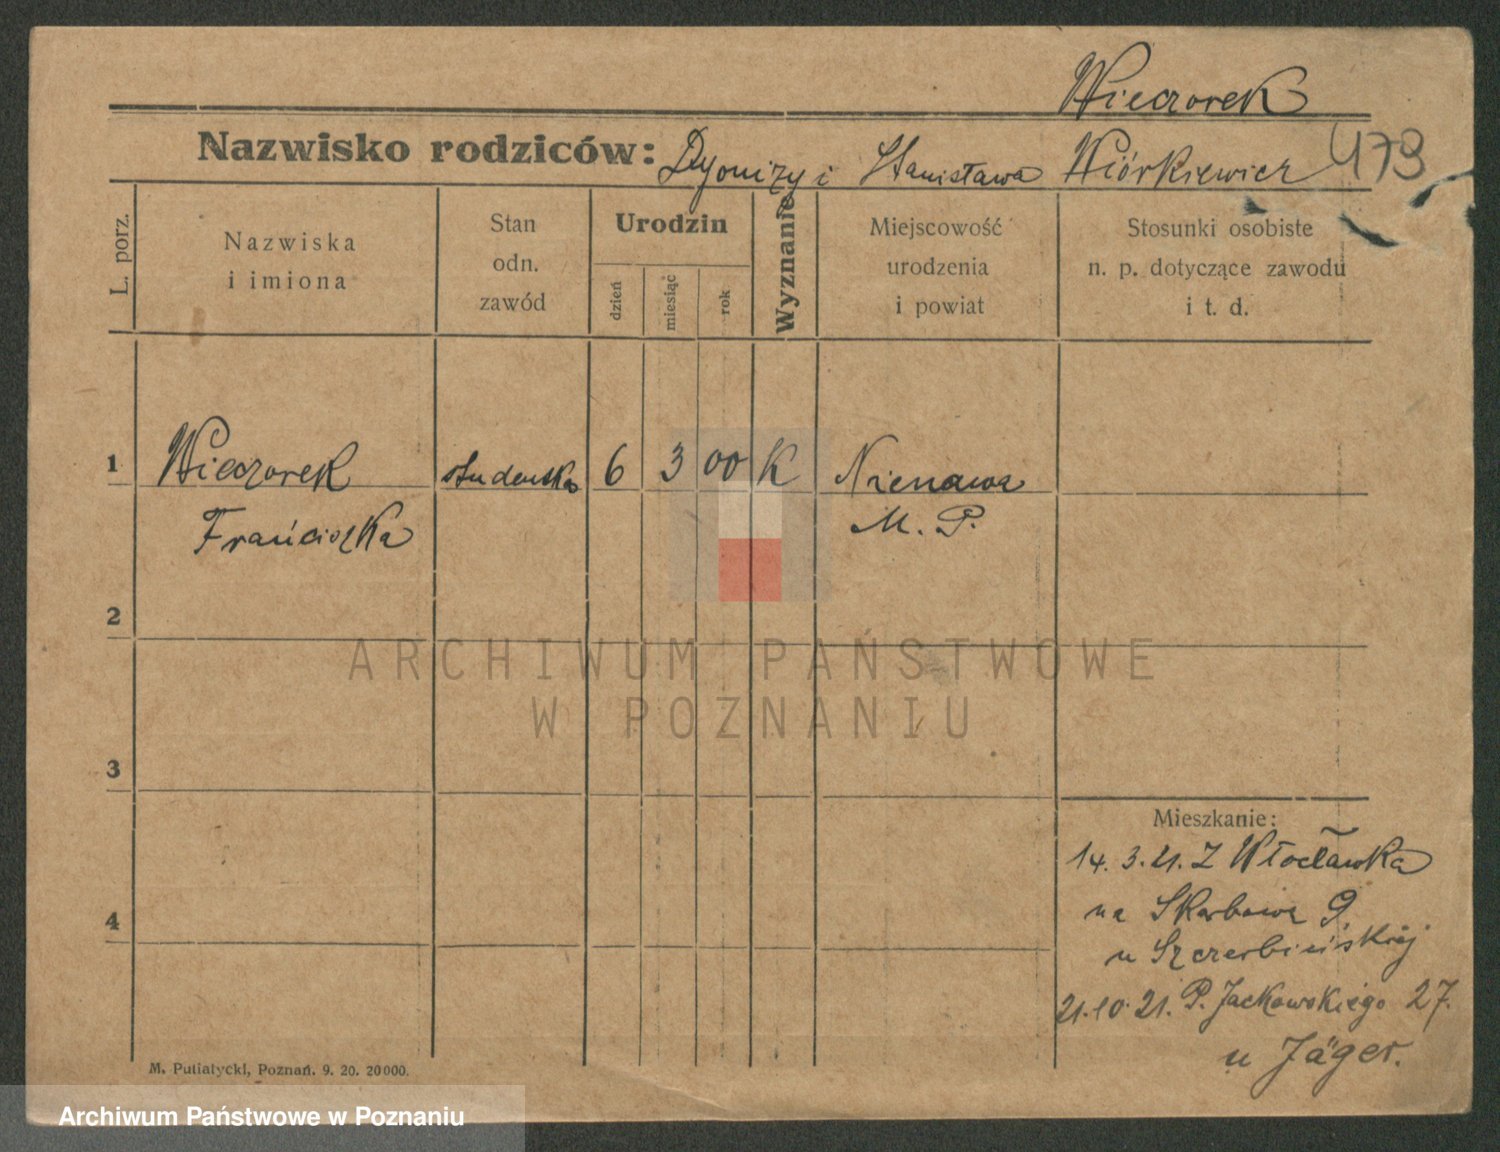 Wieczorek
Nazwisko rodziców: Dyonizy i Stanisława Wiórkiewicz 479
L. porz.
Nazwiska
i imiona
Stan
odn.
zawód
Urodzin
dzień
miesiąc
rok
Wyznanie
Miejscowość
urodzenia
i powiat
Stosunki osobiste
n. p. dotyczące zawodu
i t. d.
1 Wieczorek studentka 6 3 00 K
Franciszka M. P.
2
3
4
Mieszkanie:
14. 3. 21. Z Włocławka
na Skarbowa 9
u Szczerbińskiej
21.10.21. P. Jackowskiego 27.
u Jäger.
M. Putiatycki, Poznań. 9. 20. 20000.
ARCHIWUM PAŃSTWOWE
W POZNANIU
Archiwum Państwowe w Poznaniu